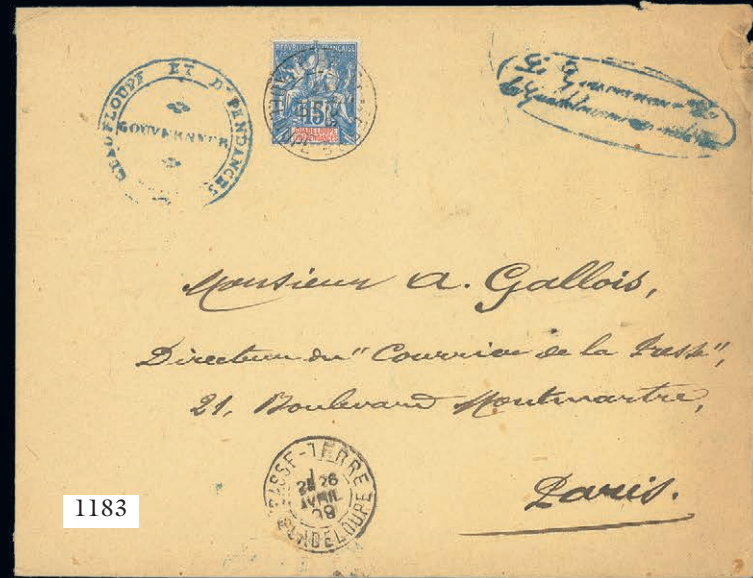 GUADELOUPE ET DÉPENDANCES
GOUVERNEUR
RÉPUBLIQUE FRANÇAISE
15
GUADELOUPE
ET DÉPENDANCES
Le Gouverneur
Monsieur A. Gallois,
Directeur du "Courrier de la Presse",
21, Boulevard Montmartre,
Paris.
BASSE-TERRE
26
AVRIL
GUADELOUPE
1183